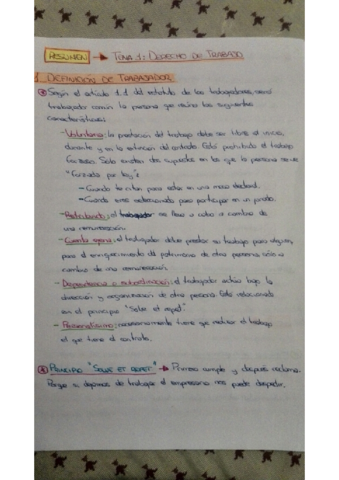 RESUMEN → TEMA 1: DERECHO DE TRABAJO
1. DEFINICIÓN DE TRABAJADOR
Según el artículo 1.1 del estatuto de los trabajadores, será
trabajador común la persona que reúna las siguientes
características:
- Voluntaria: la prestación del trabajo debe ser libre al inicio,
durante y en la extinción del contrato. Está prohibido el trabajo
forzoso. Solo existen dos supuestos en los que la persona se ve
"forzada por ley":
- Cuando te citan para estar en una mesa electoral.
- Cuando eres seleccionado para participar en un jurado.
- Retribuido: el trabajador se lleva a cabo a cambio de
una remuneración.
- Cuenta ajena: el trabajador debe prestar su trabajo para alguien,
para el enriquecimiento del patrimonio de otra persona sólo a
cambio de una remuneración.
- Dependencia o subordinación: el trabajador actúa bajo la
dirección y organización de otra persona. Está relacionada
con el principio "Solve et repet".
- Personalísimo: necesariamente tiene que realizar el trabajo
el que tiene el contrato.
PRINCIPIO "SOLVE ET REPET" → Primero cumple y después reclama.
Porque si dejamos de trabajar el empresario nos puede despedir.